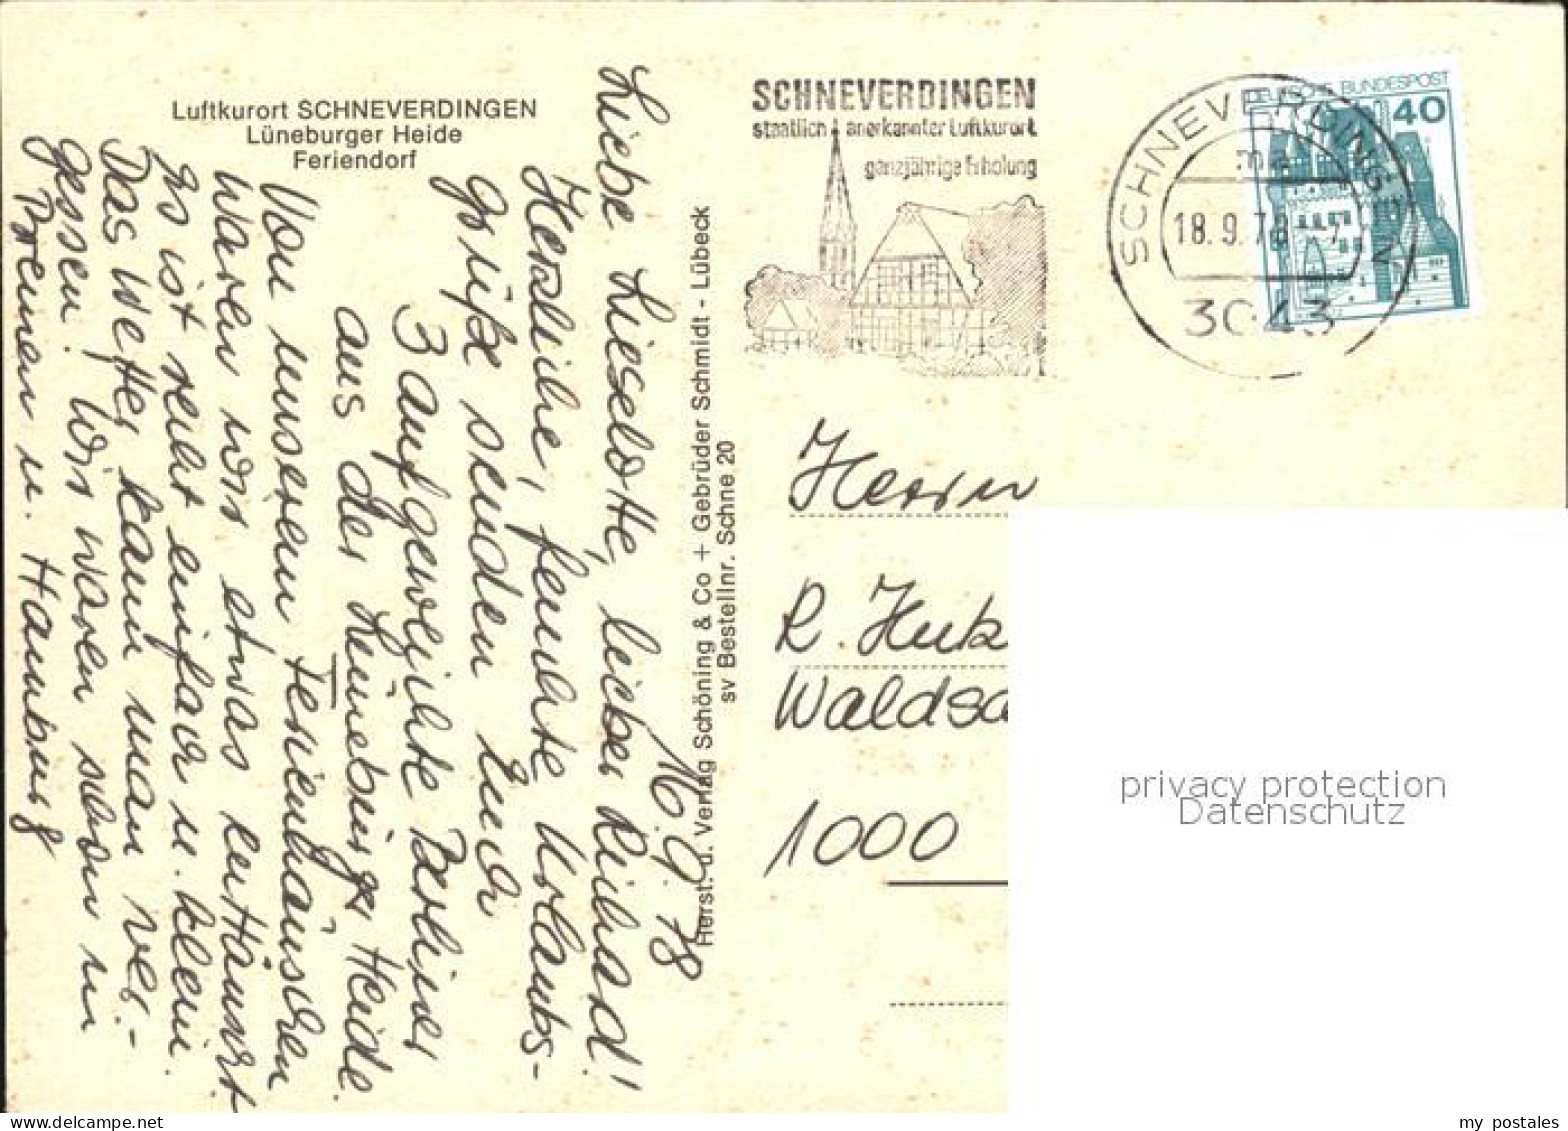 Luftkurort SCHNEVERDINGEN
Lüneburger Heide
Feriendorf
16.9.78
Liebe Lieselotte, lieber Reinhard!
Herzliche, feuchte Urlaubs-
grüße senden Euch
3 aufgeweichte Berliner
aus der Lüneburger Heide.
Von unserem Ferienhäuschen
waren wir etwas enttäuscht
Es ist recht einfach u. klein.
Das Wetter kann man ver-
gessen. Wir waren schon in
Bremen u. Hamburg
Herst. u. Verlag Schöning & Co + Gebrüder Schmidt - Lübeck
sv Bestellnr. Schne 20
SCHNEVERDINGEN
staatlich anerkannter Luftkurort
ganzjährige Erholung
DEUTSCHE BUNDESPOST
40
SCHNEVERDINGEN
ma
18.9.78
3043
Herrn
R. Huk
Waldsa
1000
privacy protection
Datenschutz
my postales